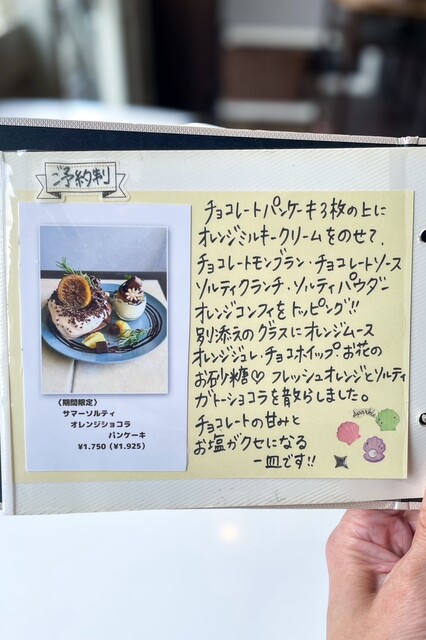 ご予約制
チョコレートパンケーキ3枚の上に
オレンジミルキークリームをのせて、
チョコレートモンブラン・チョコレートソース
ソルティクランチ・ソルティパウダー
オレンジコンフィをトッピング!!
別添えのグラスにオレンジムース
オレンジジュレ・チョコホイップお花の
お砂糖♡ フレッシュオレンジとソルティ
ガトーショコラを散らしました。
チョコレートの甘みと
お塩がクセになる
一皿です!!
〈期間限定〉
サマーソルティ
オレンジショコラ
パンケーキ
¥1.750（¥1.925）
Sparkle